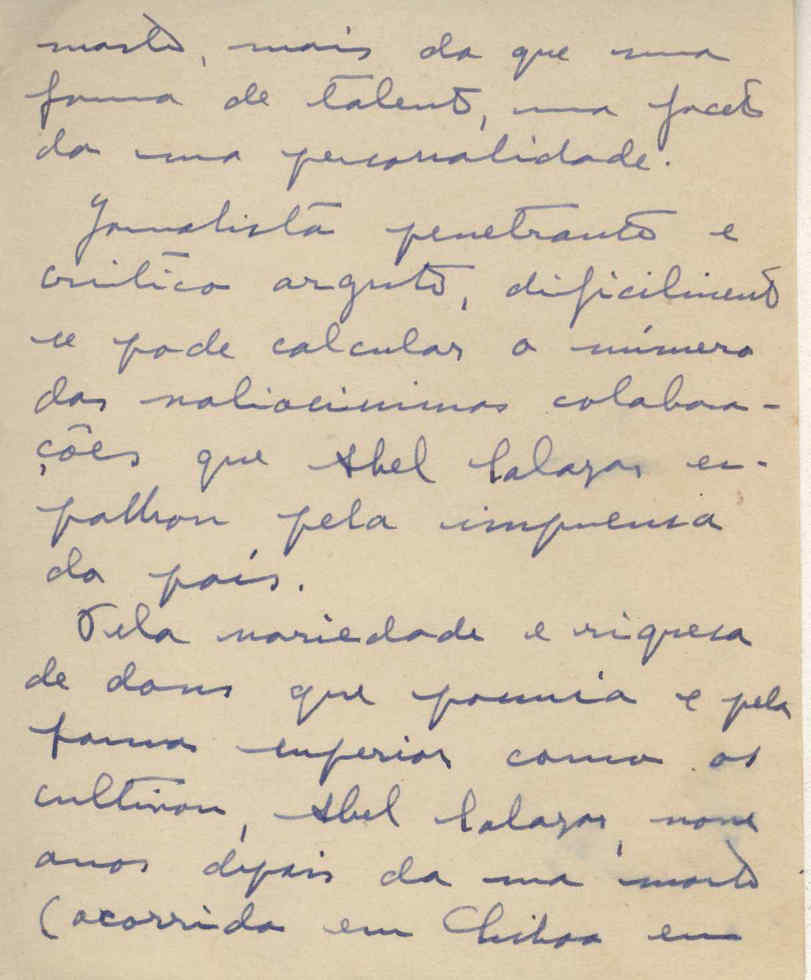 morte, mais do que uma
forma de talento, uma faceta
da sua personalidade.
Jornalista penetrante e
crítico arguto, dificilmente
se pode calcular o número
das valiosíssimas colabora-
ções que Abel Salazar es-
palhou pela imprensa
do país.
Pela variedade e riquesa
de dons que possuia e pela
forma superior como os
cultivou, Abel Salazar, nove
anos depois da sua morte
(ocorrida em Lisboa em